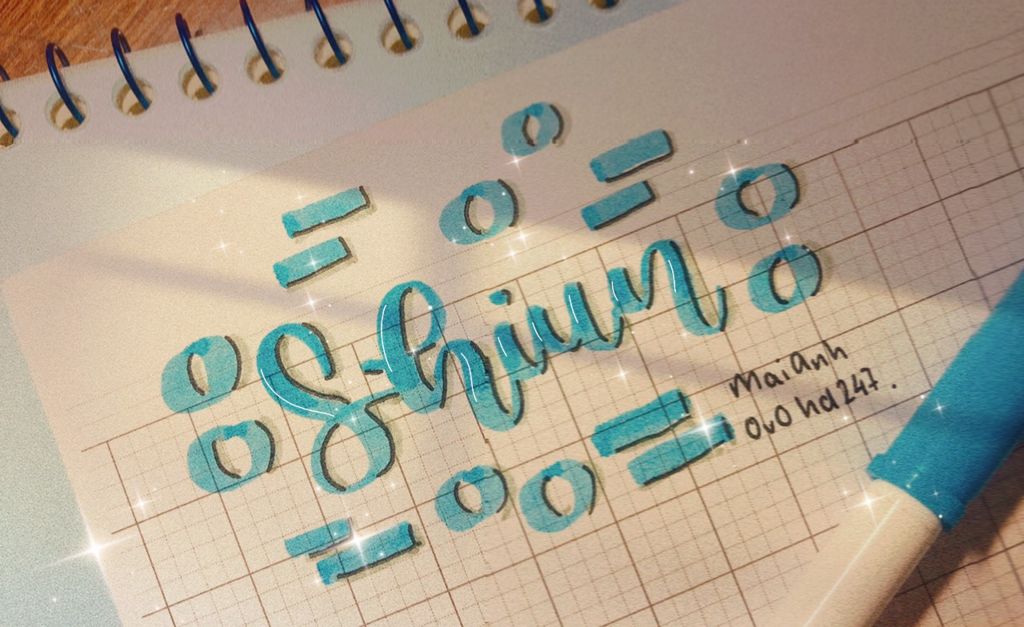 Shiun
MaiAnh
0v0 hd247.